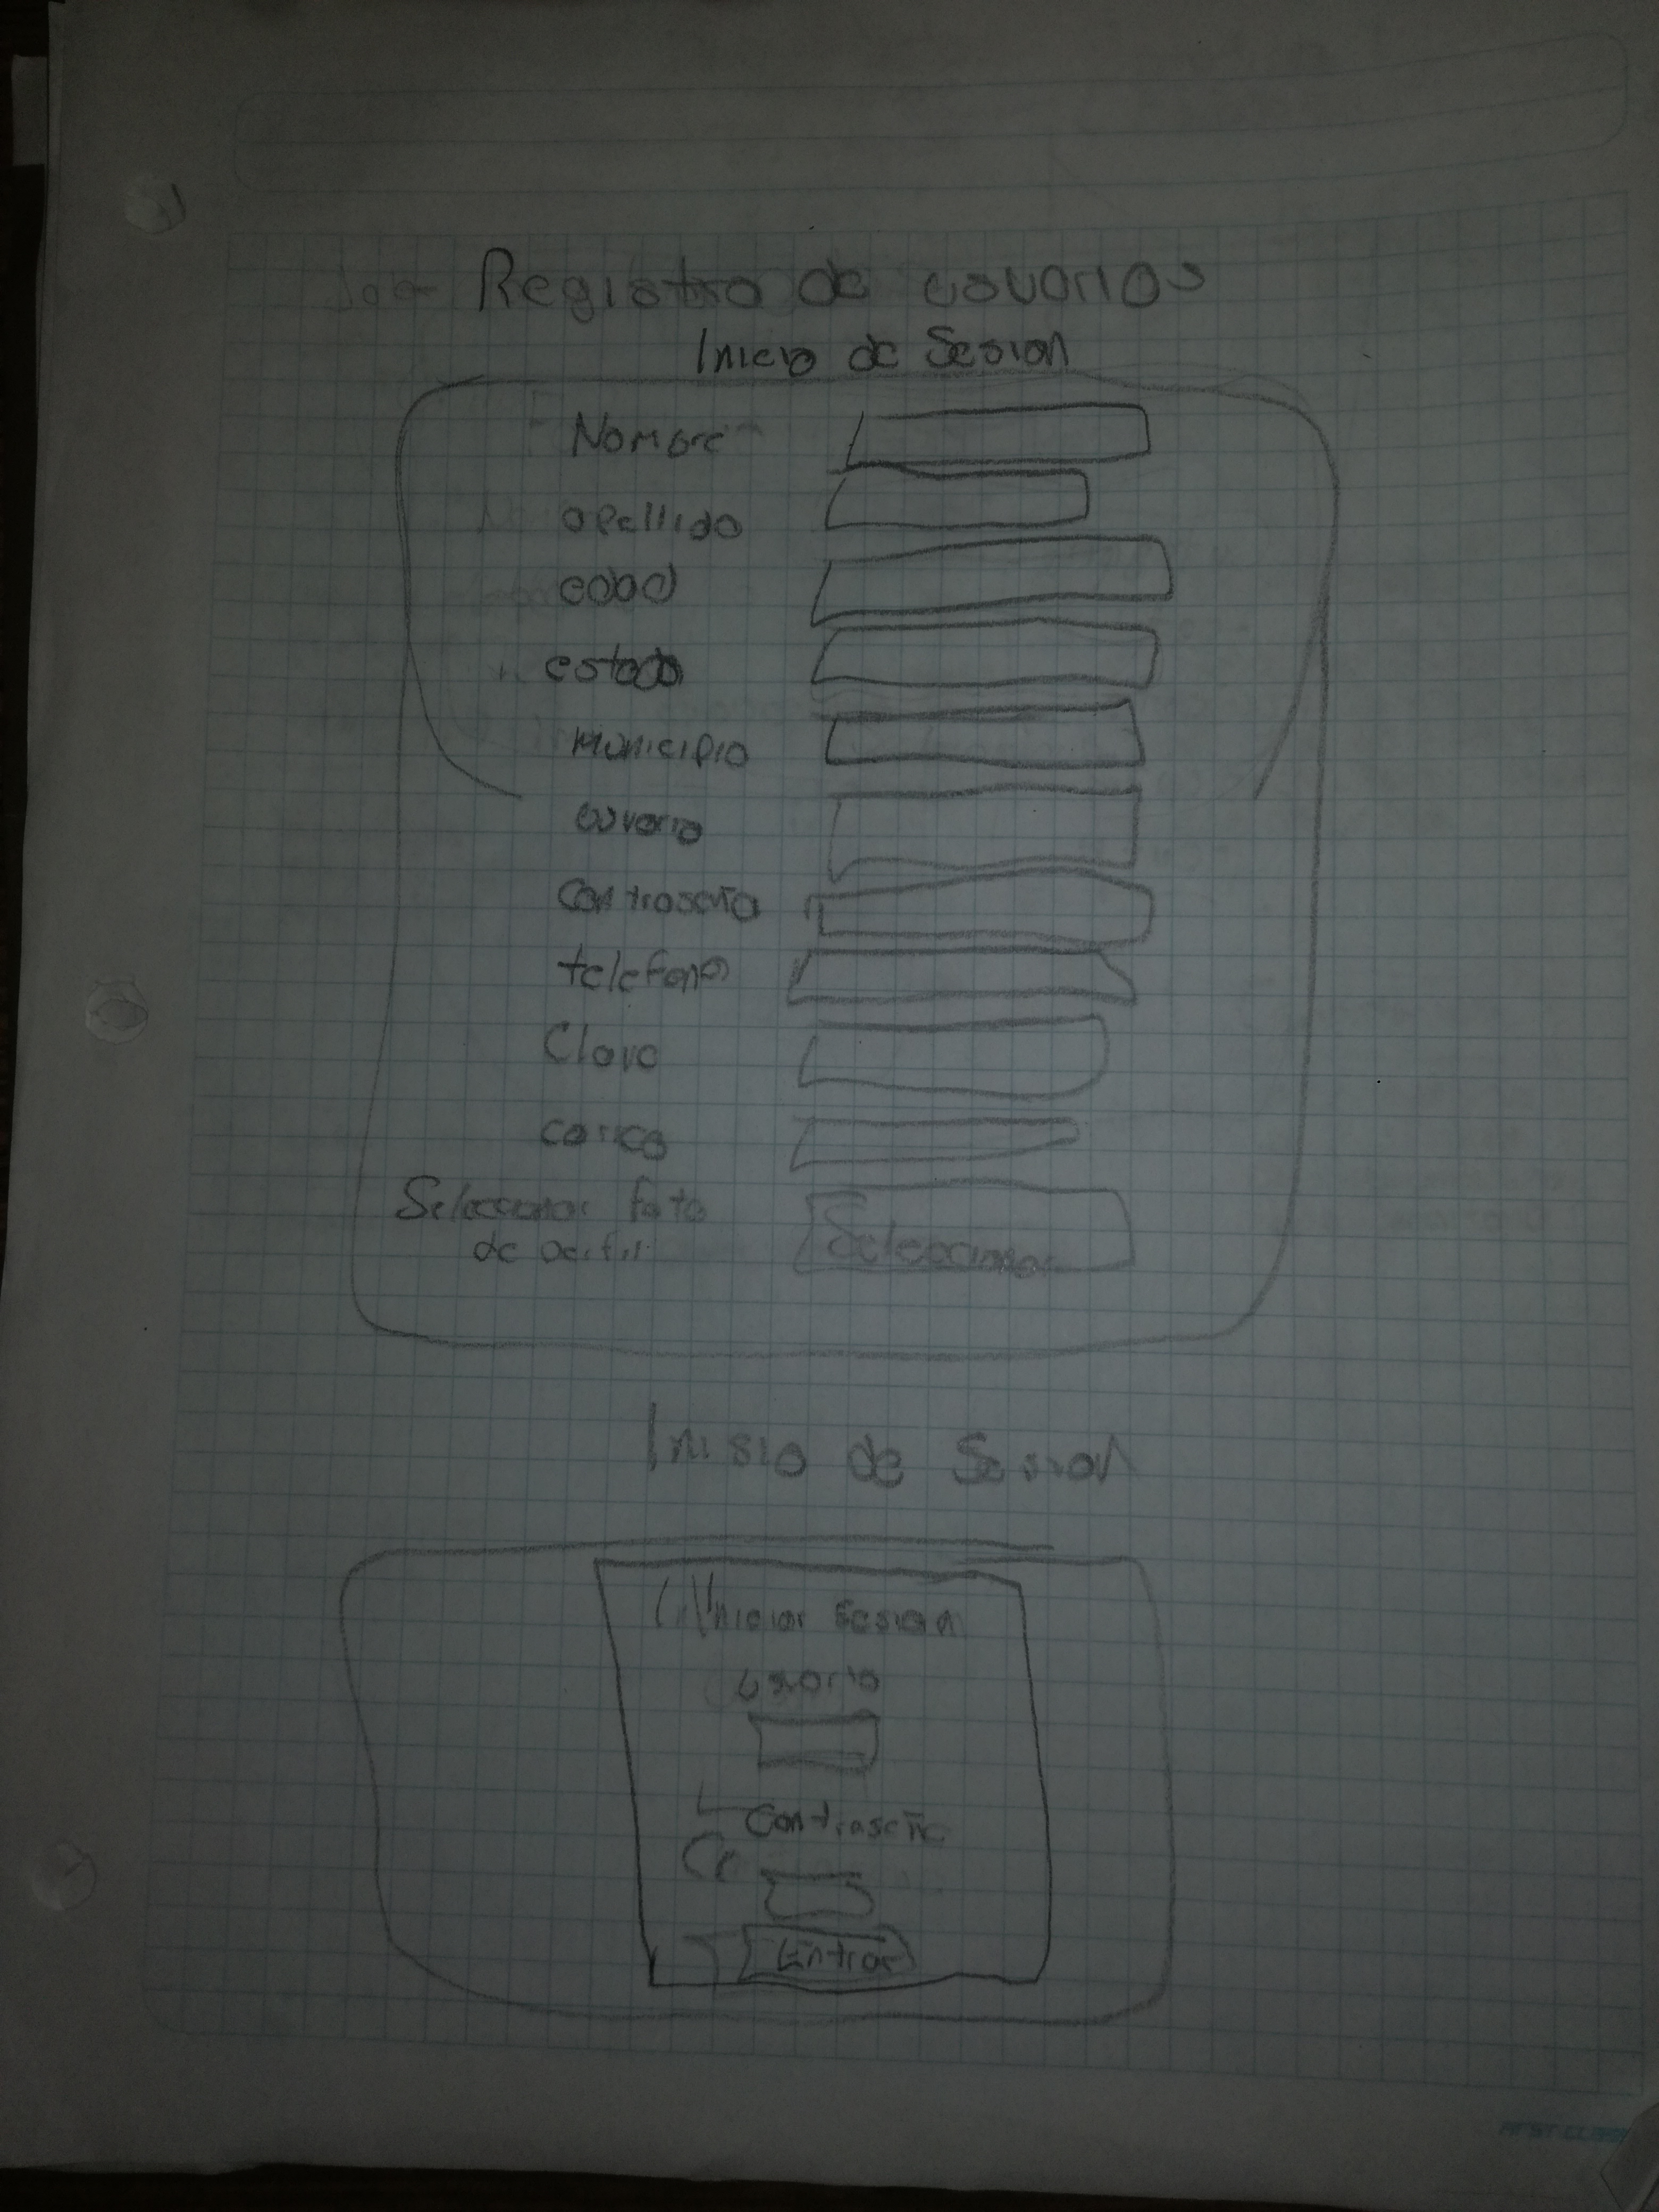 Registro de usuarios
Inicio de Sesion
Nombre
apellido
edad
estado
municipio
Contraseña
telefono
Clave
Seleccionar foto
de perfil
Seleccionar
Inisio de Sesion
Iniciar Sesion
Usuario
Contraseña
Entrar